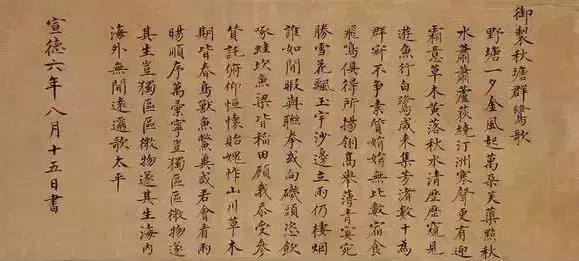 御製秋塘群鷺歌
野塘一夕金風起萬朶芙蕖點秋
水蕭蕭蘆荻繞汀洲寒聲更有迎
霜意草木黃落秋水清歷歷窺見
遊魚行白鷺咸來集芳渚數十為
群斯不爭素質娟娟無比數宿食
飛鳴俱得所揚翎高舉薄青冥宛
勝雪花飄玉宇沙邊立雨仍棲烟
誰如閒暇與聯拳或向磯頭恣飲
啄蛙坎魚梁皆稻田顧我忝受參
贊託俯仰恒懷貽愧怍山川草木
期皆春鳥獸魚鱉奠咸若會看雨
暘順序萬彙寧豈獨區區微物遂
其生豈獨區區微物遂其生海內
海外無間遠邇歌太平
宣德六年八月十五日書